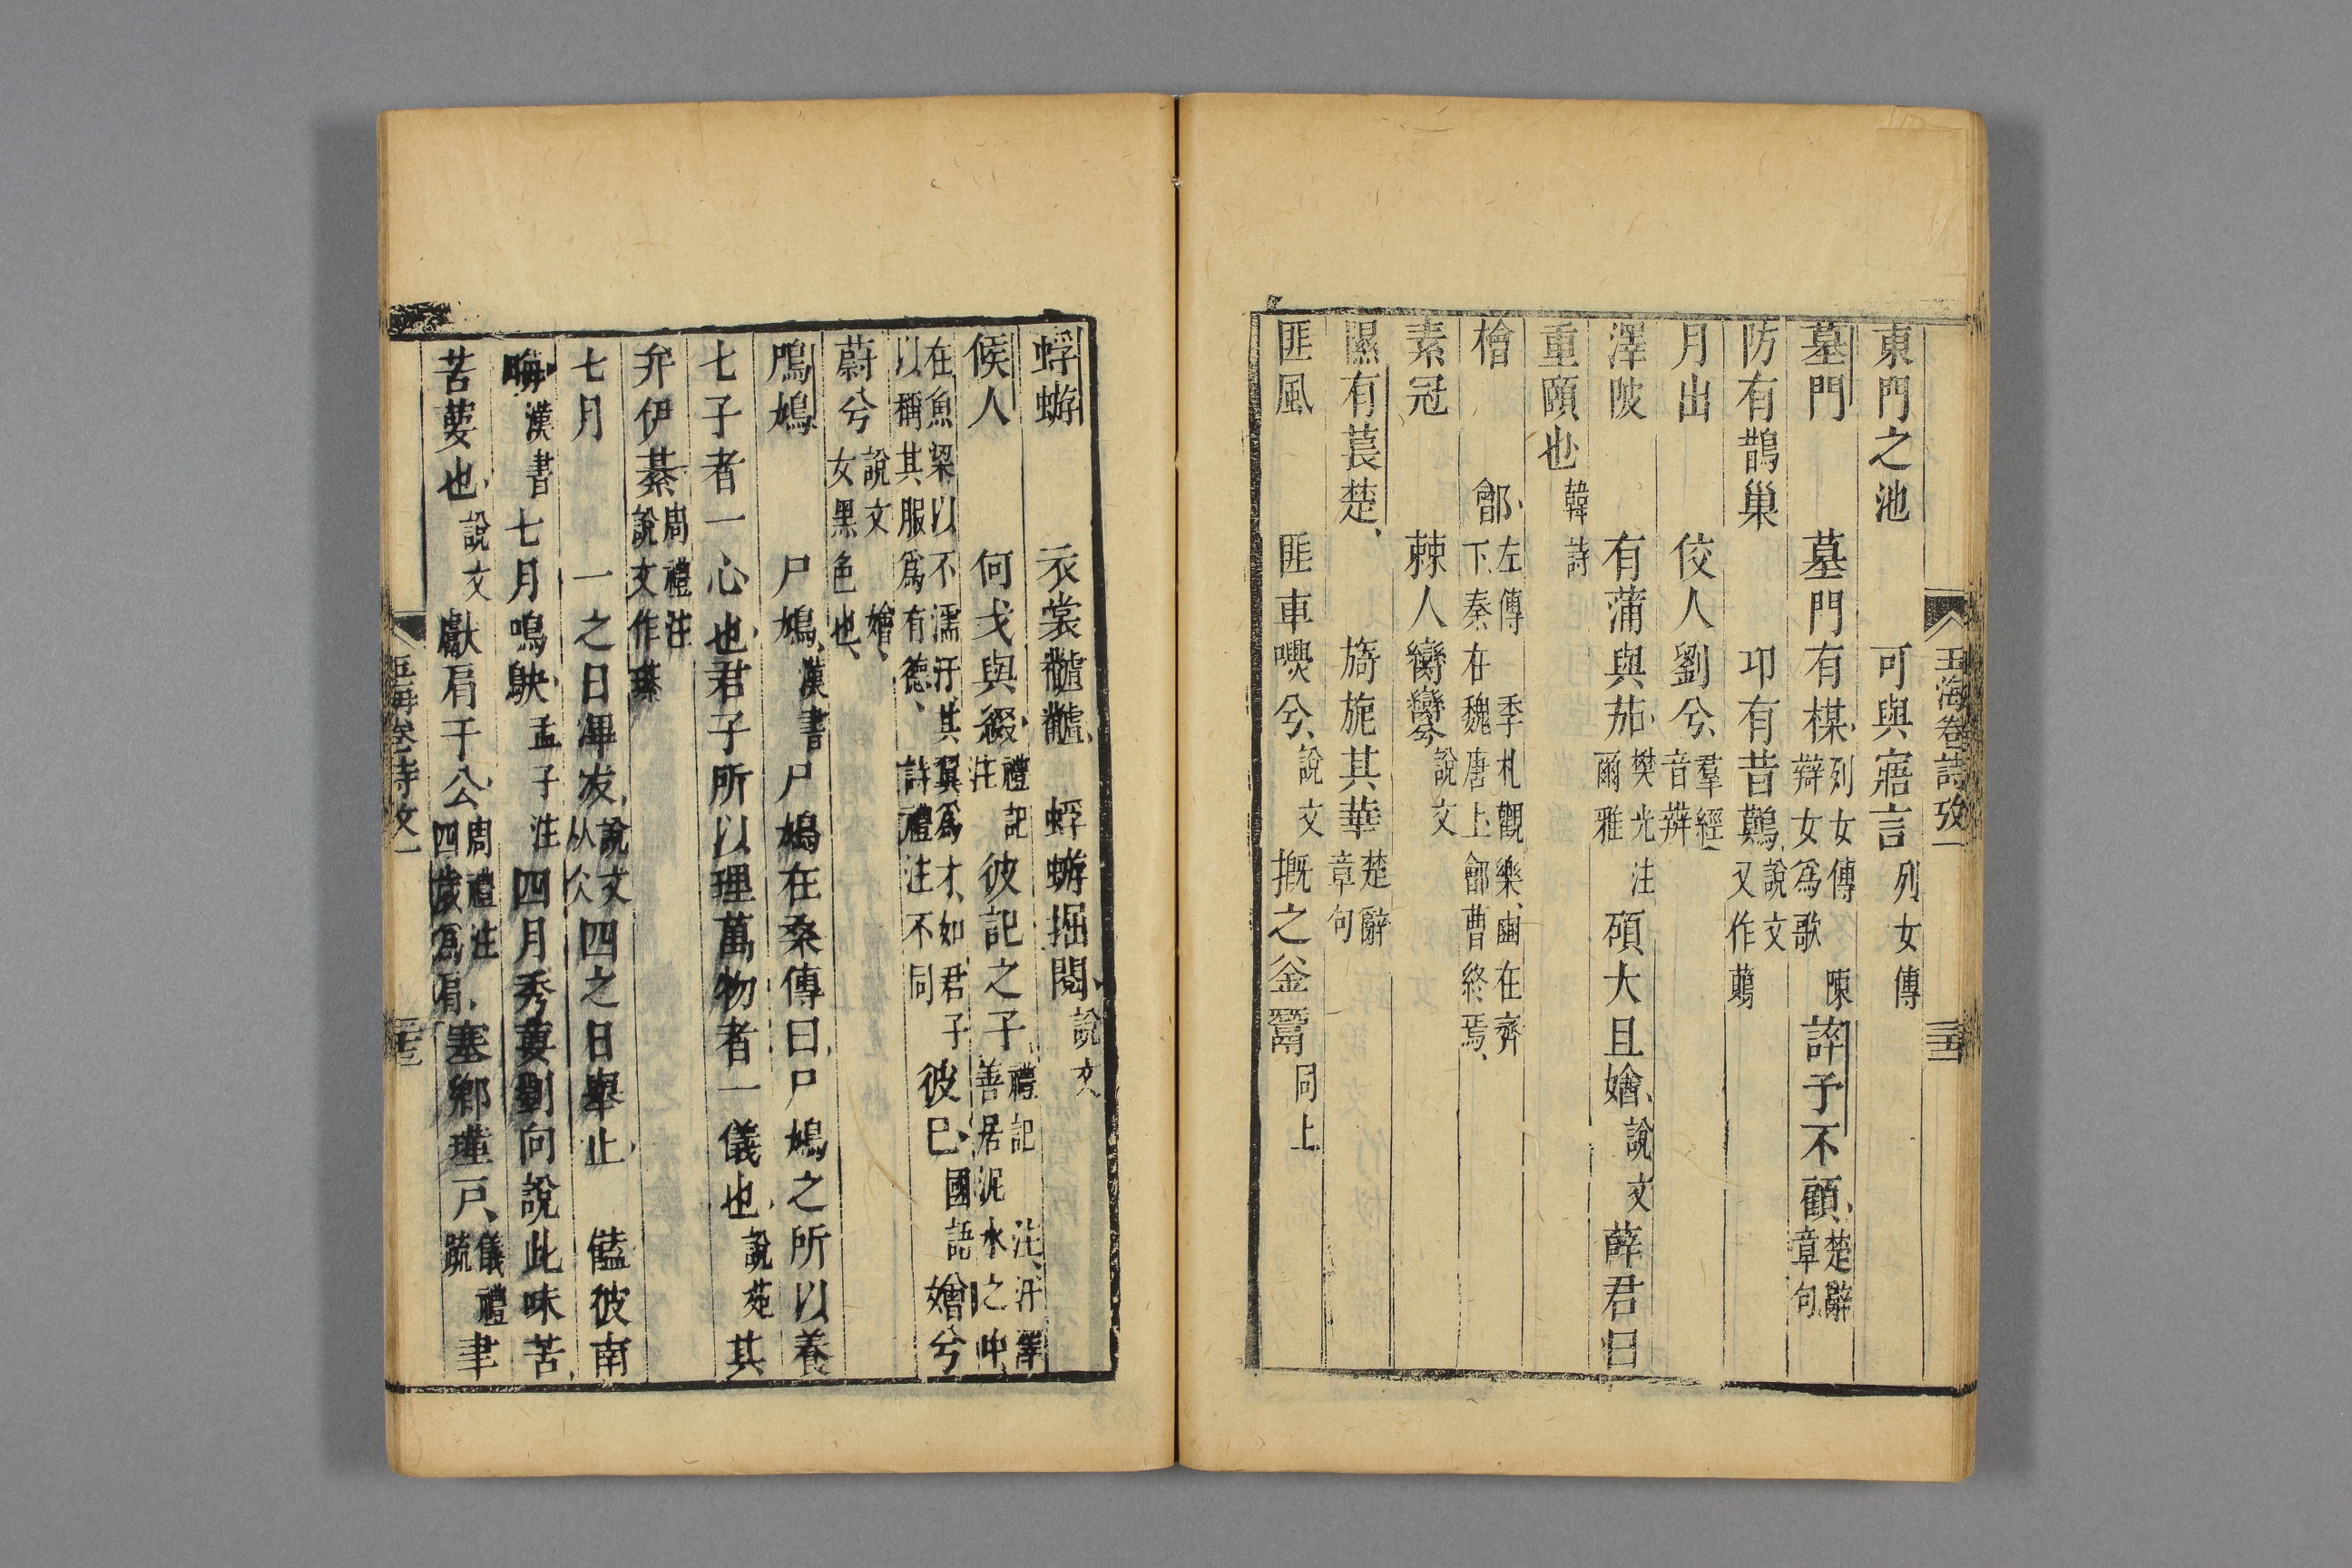 玉海卷詩攷一
東門之池 可與寤言列女傳
墓門 墓門有楳列女傳陳辯女為歌誶予不顧楚辭章句
防有鵲巢 卭有旨鷏說文又作薦
月出 佼人劉兮羣經音辨
澤陂 有蒲與茄樊光注爾雅碩大且㜝說文薛君曰
重頤也韓詩
檜 鄶左傳季札觀樂豳在齊下秦在魏唐上鄶曹終焉
素冠 棘人臠臠兮說文
隰有萇楚 旖旎其華楚辭章句
匪風 匪車嘌兮說文摡之釜鬵同上
蜉蝣 衣裳𪓐𪓐 蜉蝣掘閱說文
候人 何戈與綴禮記注彼記之子禮記注汙澤善居泥水之中
在魚梁以不濡汙其翼為才如君子以稱其服為有德詩禮注不同彼已國語嬒兮
蔚兮說文嬒女黑色也
鳲鳩 尸鳩漢書尸鳩在桑傳曰尸鳩之所以養
七子者一心也君子所以理萬物者一儀也說苑其
弁伊綦周禮注說文作璂
七月 一之日滭冹說文从仌四之日舉止 饁彼南
晦漢書七月鳴鴃孟子注四月秀葽劉向說此味苦
苦葽也說文獻肩于公周禮注四歲為肩塞鄉墐戶儀禮疏聿